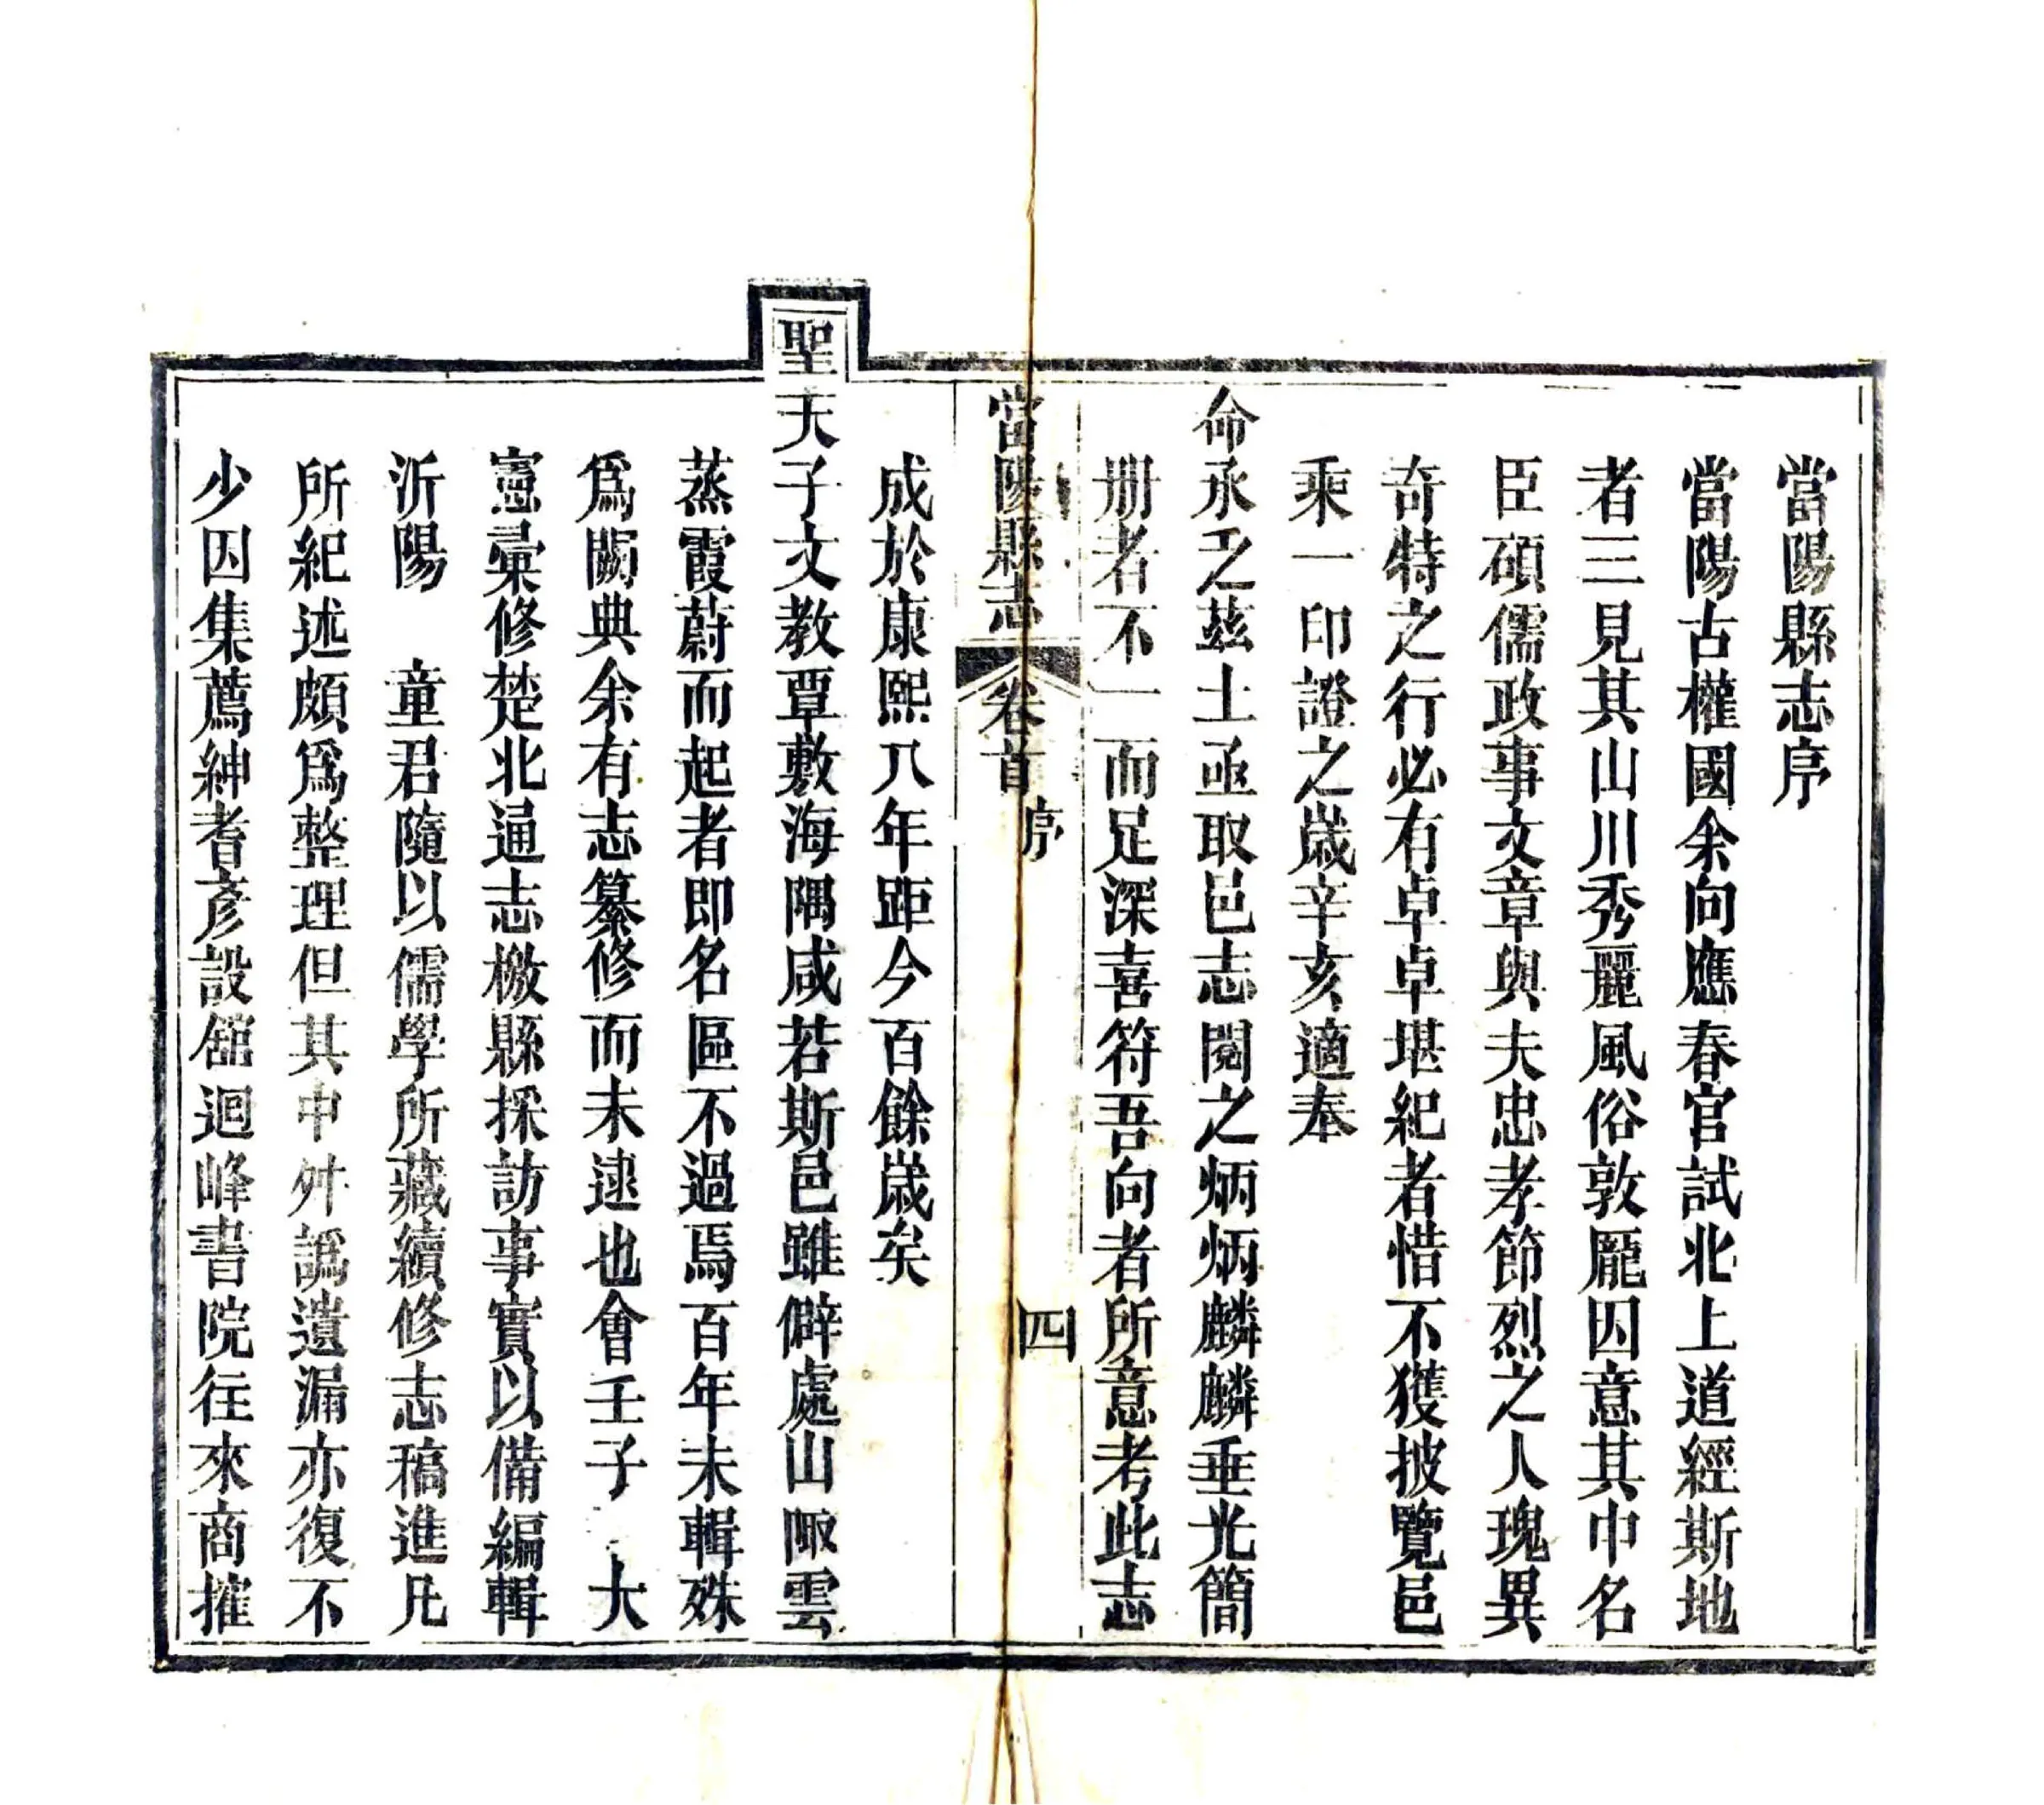 當陽縣志序
當陽古權國余向應春官試北上道經斯地
者三見其山川秀麗風俗敦龎因意其中名
臣碩儒政事文章與夫忠孝節烈之人瑰異
奇特之行必有卓卓堪紀者惜不獲披覽邑
乘一印證之歲辛亥適奉
命承乏茲土亟取邑志閱之炳炳麟麟垂光簡
册者不一而足深喜符吾向者所意考此志
當陽縣志 卷首 序 四
成於康熙八年距今百餘歲矣
聖天子文教覃敷海隅咸若斯邑雖僻處山陬雲
蒸霞蔚而起者即名區不過焉百年未輯殊
爲闕典余有志纂修而未逮也會壬子 大
憲彙修楚北通志檄縣採訪事實以備編輯
沂陽 童君隨以儒學所藏續修志稿進凡
所紀述頗爲整理但其中舛譌遺漏亦復不
少因集薦紳耆彥設舘迴峰書院往來商搉